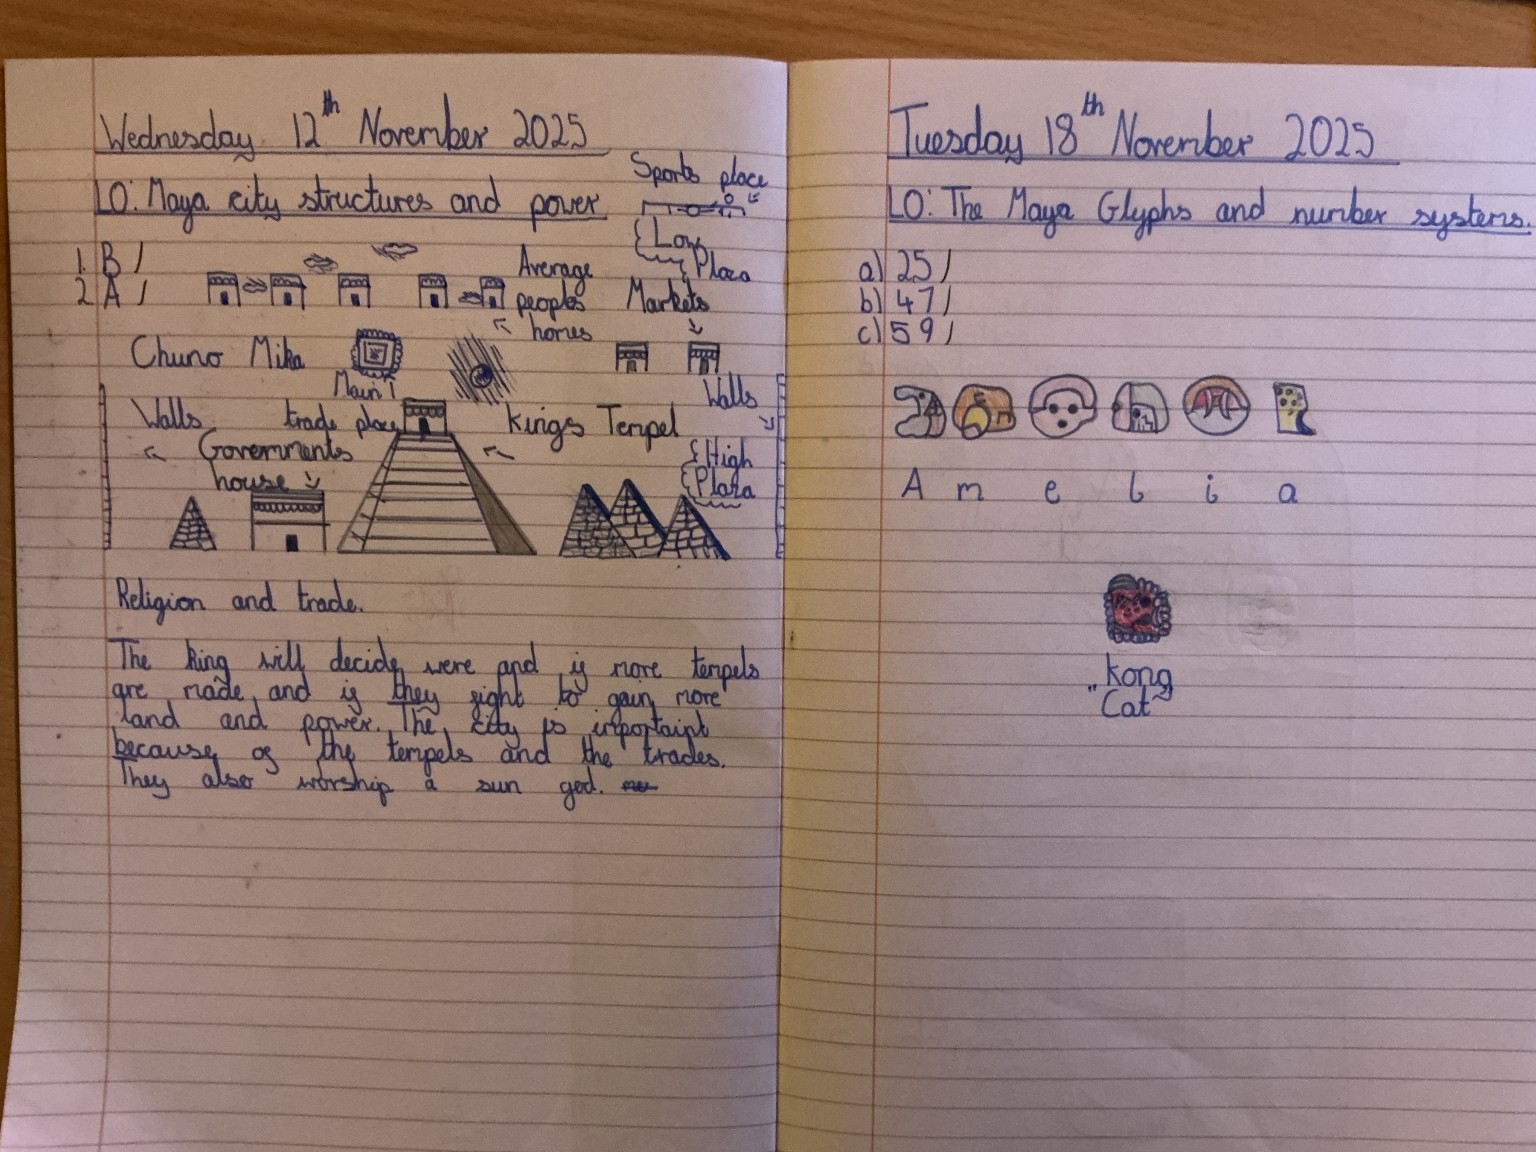 Wednesday 12th November 2025
LO: Maya city structures and power
Sports place
1. B /
2 A /
Average
peoples
homes
Low
Plaza
Markets
Chuno Mika
Main
trade place
Walls
Walls
Governments
house
Kings Tempel
High
Plaza
Religion and trade.
The king will decide were and if more tempels
are made and if they fight to gain more
land and power. The city is importaint
because of the tempels and the trades.
They also worship a sun god.
Tuesday 18th November 2025
LO: The Maya Glyphs and number systems.
a) 25 /
b) 47 /
c) 59 /
A m e l i a
"Kong
Cat"